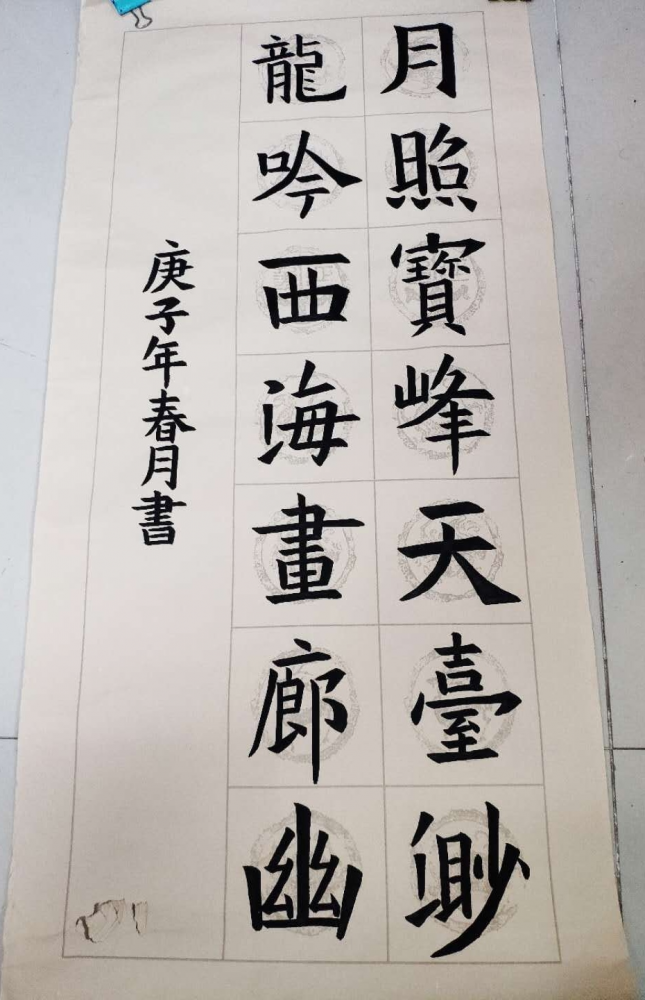 月照寶峰天臺緲
龍吟西海畫廊幽
庚子年春月書